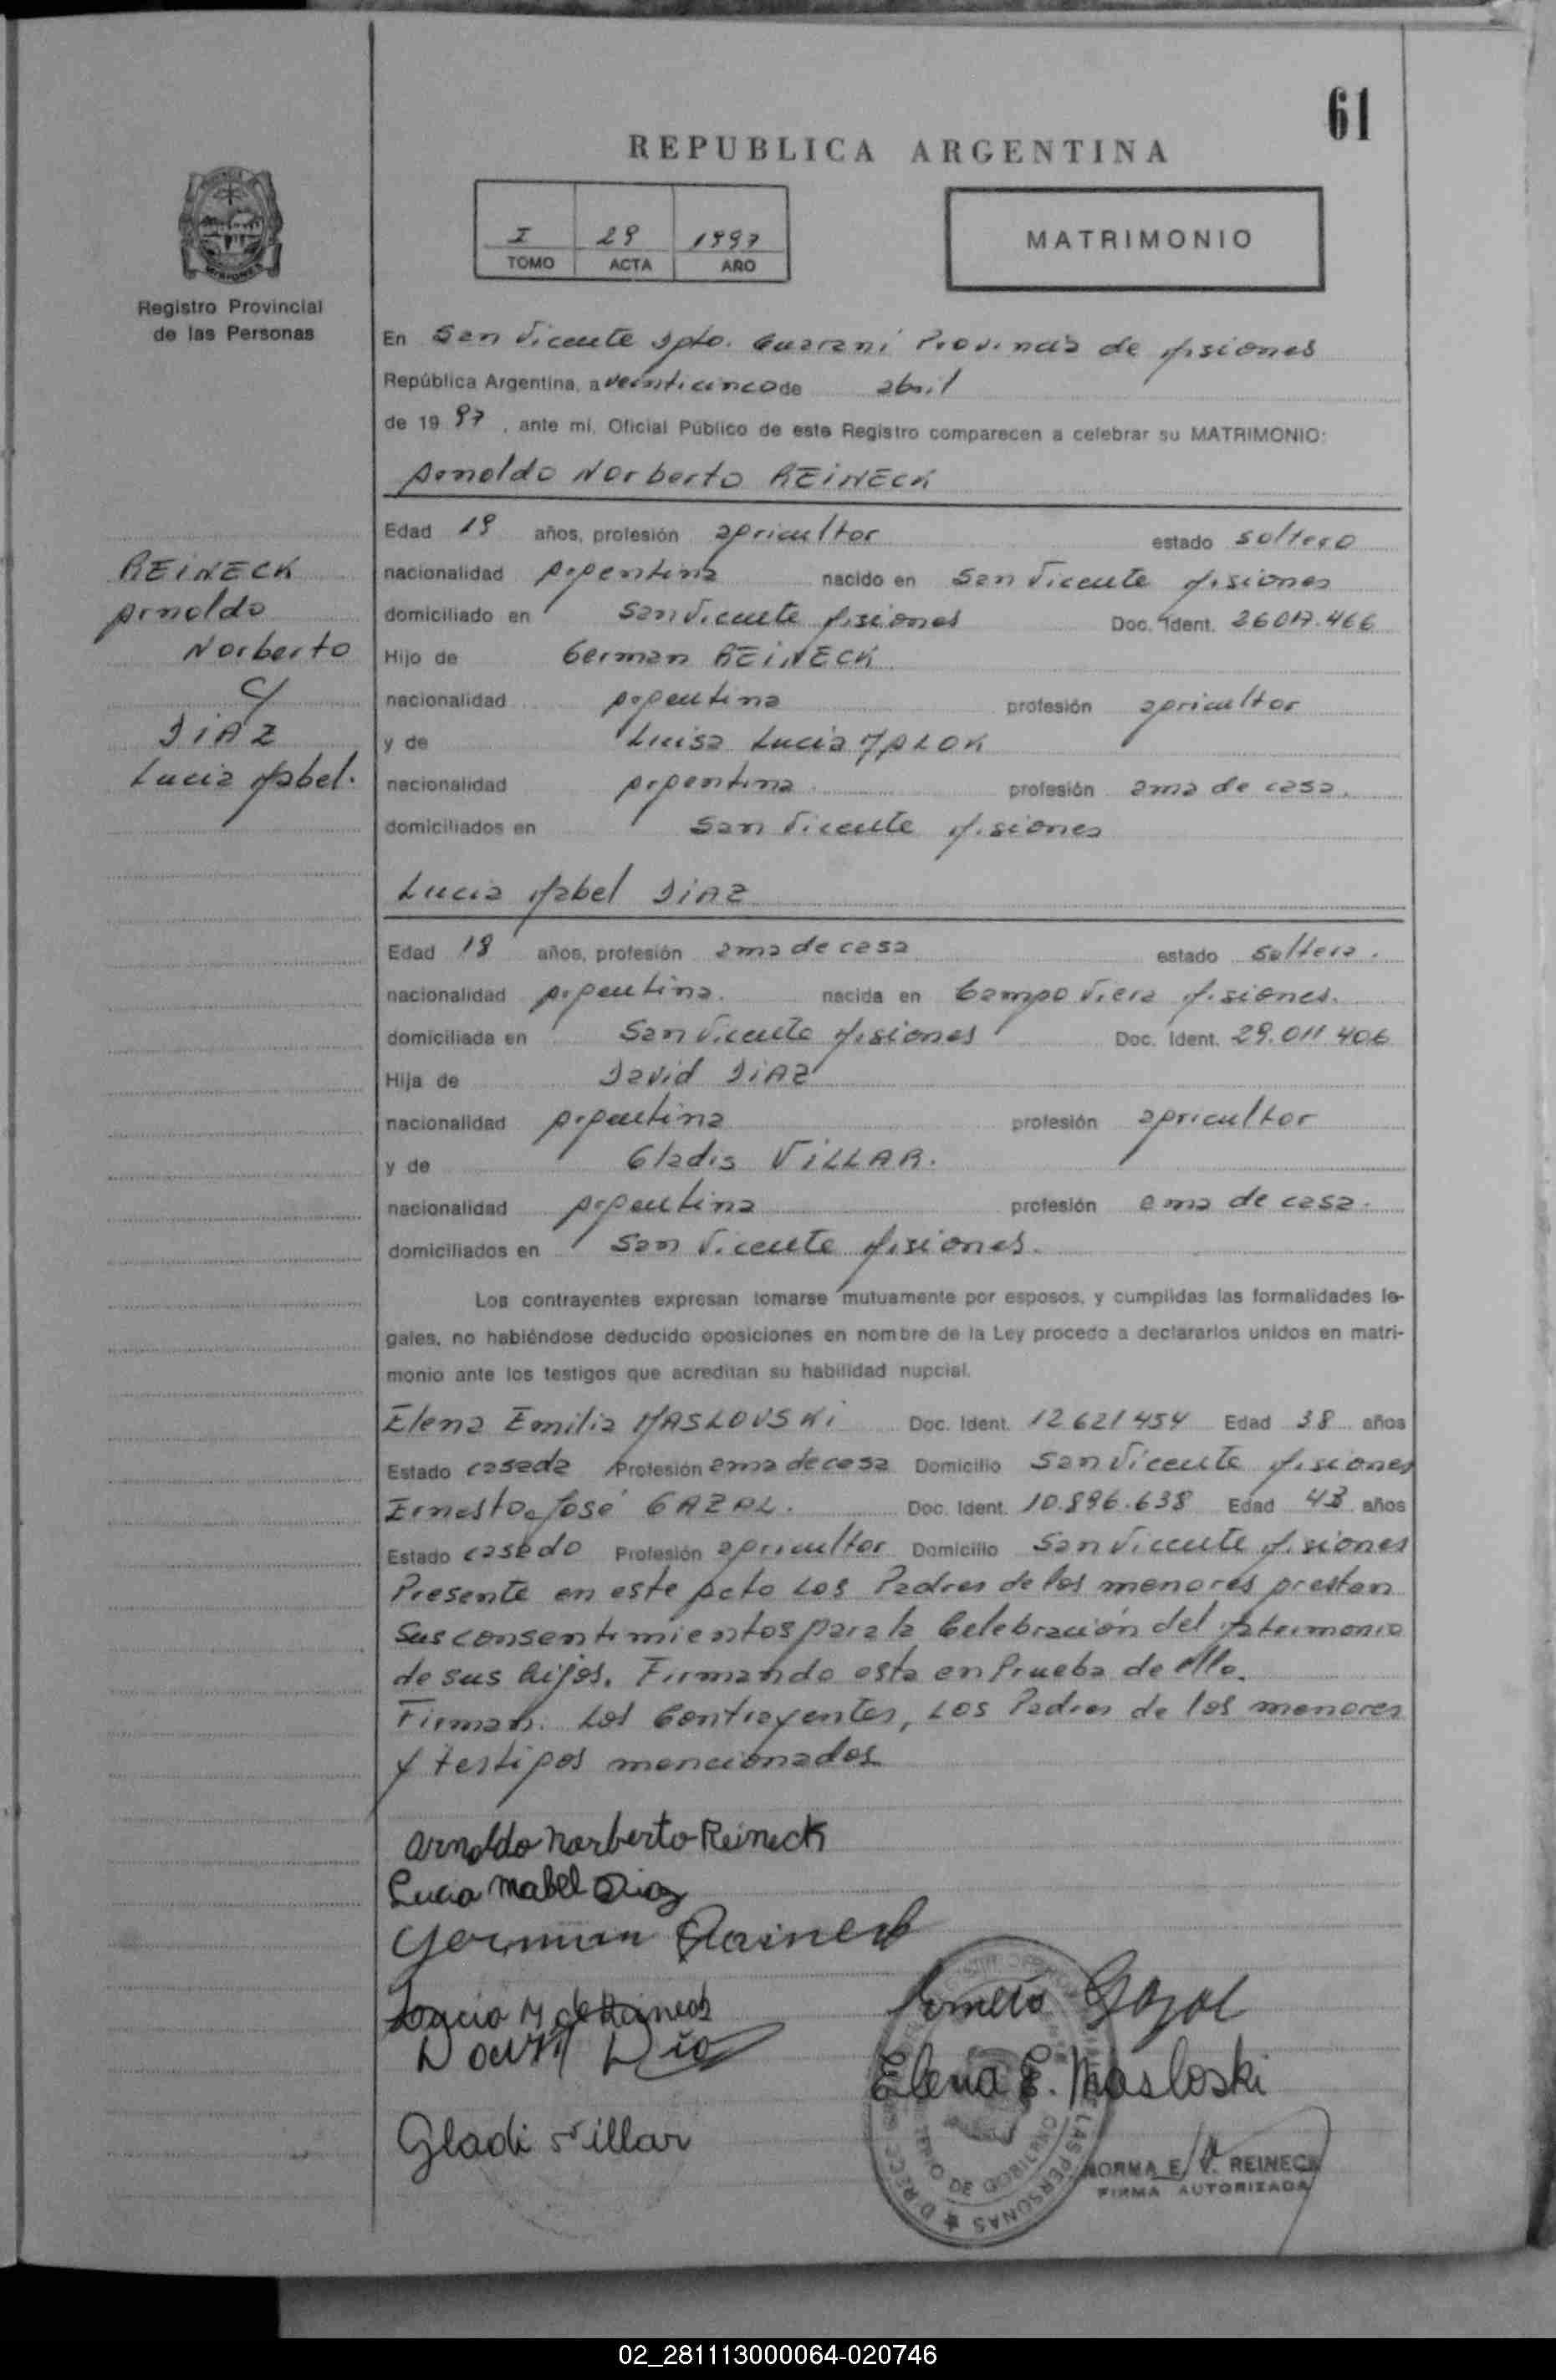 61
REPUBLICA ARGENTINA
I 29 1997
TOMO ACTA AÑO
MATRIMONIO
Registro Provincial
de las Personas
REINECK
Arnoldo
Norberto
c/
DIAZ
Lucia Mabel.
En San Vicente Dpto. Guarani Provincia de Misiones
República Argentina, a veinticinco de abril
de 19 97, ante mí, Oficial Público de este Registro comparecen a celebrar su MATRIMONIO:
Arnoldo Norberto REINECK
Edad 19 años, profesión agricultor estado soltero
nacionalidad Argentina nacido en San Vicente Misiones
domiciliado en San Vicente Misiones Doc. Ident.
Hijo de German REINECK
nacionalidad Argentina profesión agricultor
y de Luisa Lucia
nacionalidad Argentina profesión ama de casa.
domiciliados en San Vicente Misiones
Lucia Mabel DIAZ
Edad 18 años, profesión ama de casa estado soltera.
nacionalidad Argentina. nacida en Campo Viera Misiones.
domiciliada en San Vicente Misiones Doc. Ident. 29.011.406
Hija de David DIAZ
nacionalidad Argentina profesión agricultor
y de Gladis VILLAR.
nacionalidad Argentina profesión ama de casa.
domiciliados en San Vicente Misiones.
Los contrayentes expresan tomarse mutuamente por esposos, y cumplidas las formalidades le-
gales, no habiéndose deducido oposiciones en nombre de la Ley procedo a declararlos unidos en matri-
monio ante los testigos que acreditan su habilidad nupcial.
Elena Emilia MASLOVSKI Doc. Ident. 12621454 Edad 38 años
Estado casada Profesión ama de casa Domicilio San Vicente Misiones
Ernesto José GAZAL. Doc. Ident. 10.896.638 Edad 43 años
Estado casado Profesión agricultor Domicilio San Vicente Misiones
Presente en este Acto Los Padres de los menores prestan
Sus consentimientos para la Celebración del Matrimonio
de sus hijos. Firmando esta en Prueba de ello.
Firman. Los Contrayentes, Los Padres de los menores
y testigos mencionados
Arnoldo Norberto Reineck
Lucia Mabel Diaz
German Raineck
David Dia
Ernesto Gazal
Elena E. Masloski
Gladi Villar
NORMA E. V. REINECK
FIRMA AUTORIZADA
02_281113000064-020746